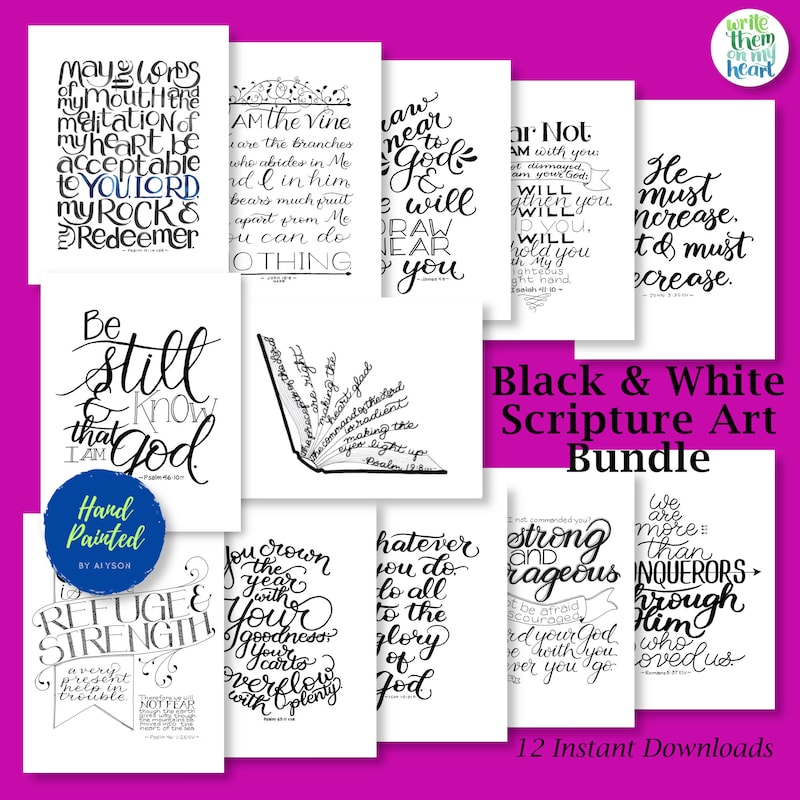 may the words
of my mouth and the
meditation of
my heart be
acceptable
to YOU, LORD
my ROCK &
my Redeemer.
I AM the Vine,
you are the branches
who abides in Me
and I in him
bears much fruit
apart from Me
you can do
NOTHING.
JOHN 15:5
NASB
Draw
near
to
God
&
He will
DRAW
NEAR
to you
James 4:8
ear Not
I AM with you;
not dismayed,
am your God;
I WILL
gthen you.
WILL
lp you,
WILL
hold you
with My
righteous
right hand.
Isaiah 41:10
He
must
increase,
but I must
decrease.
JOHN 3:30
write
them
on my
heart
Be
still
& know
that
I AM God.
Psalm 46:10
the precepts of the Lord
are right,
making the
heart glad
the command of the Lord
is radiant
making the
eyes light up
Psalm 19:8
Black & White
Scripture Art
Bundle
Hand
Painted
BY AlYSON
is
REFUGE &
STRENGTH,
a very
present
help in
trouble.
Therefore we will
NOT FEAR
though the earth
gives way, though
the mountains be
moved into the
heart of the sea.
Psalm 46:1-2 ESV
you crown
the
year
with
your
goodness;
your
carts
overflow
with plenty.
Psalm 65:11
whatever
you do,
do all
to the
glory
of
God
I not commanded you?
strong
and
rageous
not be afraid
discouraged,
ord your God
be with you
ver you go
we
are
more
than
CONQUERORS
through
Him
who
loved us.
Romans 8:37
12 Instant Downloads